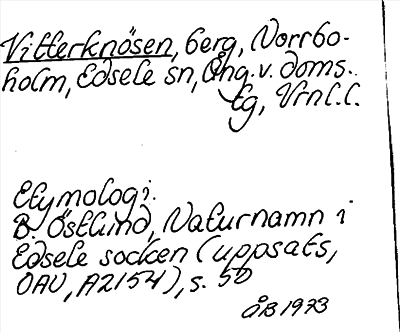 Vitterknösen, berg, Norrbo-
holm, Edsele sn, Ång. v. doms.
tg, Vrnl.l.
Etymologi.
B. Östlund, Naturnamn i
Edsele socken (uppsats,
OAU, A2154), s. 50
ÅB 1973